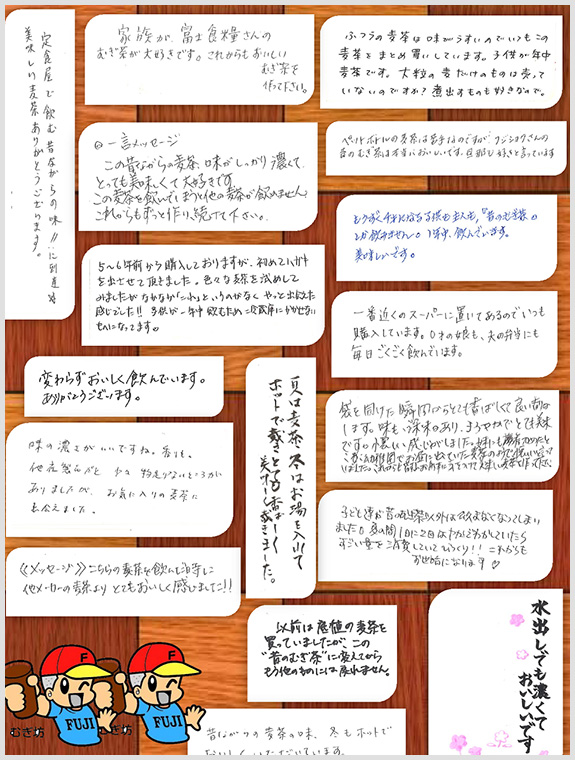 定食屋で飲む昔ながらの味!!に到達
美味しい麦茶ありがとうございます。
家族が、富士食糧さんの
むぎ茶が大好きです。これからもおいしい
むぎ茶を
作って下さい。
ふつうの麦茶は味がうすいのでいつもこの
麦茶をまとめ買いしています。子供が年中
麦茶です。大粒の麦だけのものは売って
いないのですか?煮出すものも好きなので。
◎一言メッセージ
この昔ながらの麦茶、味がしっかり濃くて、
とっても美味しくて大好きです
この麦茶を飲んでいまうと他の麦茶が飲めません。
これからもずっと作り続けて下さい。
ペットボトルの麦茶は苦手なのですが、フジショクさんの
昔のむぎ茶は本当においしいです。旦那も好きと言っています
もうすぐ才になる子供も主人も、『昔のむぎ茶』し
か飲みません。1年中、飲んでいます。
美味しいです。
5〜6年前から購入しておりますが、初めてハガキ
を出させて頂きました。色々な麦茶を試して
みましたがなかなか「これ」というのがなく やっと出会えた
感じでした!! 子供が一年中飲むため
になってます。
一番近くのスーパーに置いてあるのでいつも
購入しています。0才の娘も、夫の弁当にも
毎日ごくごく飲んでいます。
変わらずおいしく飲んでいます。
ありがとうございます。
夏は麦茶、冬はお湯を入れて
ホットで戴きとても香ばしく
美味しく戴きました。
袋を開けた瞬間からとても香ばしくて良い香り
します。味も深みあり、まろやかでとても美味
です。懐かしい感じがしました。
味の濃さがいいですね。香りも。
他店製品だと やや 物足りないところが
ありましたが、お気に入りの麦茶に
出会えました。
子ども達が昔の麦茶以外は飲まなくなってしまい
ました。夏の間1日に2回はヤカンでわかしていたら
すごい量を消費していてびっくり!! これからも
お世話になります♡
《メッセージ》こちらの麦茶を飲んだ時に
他メーカーの麦茶より とてもおいしく感じました!!
以前は底値の麦茶を
買っていましたが、この
"昔のむぎ茶"に変えてから
もう他のものには戻れません。
水出しでも濃くて
おいしいです
昔ながらの麦茶の味、冬もホットで
おいしくいただいています。
F
FUJI
むぎ坊
F
FUJI
むぎ坊